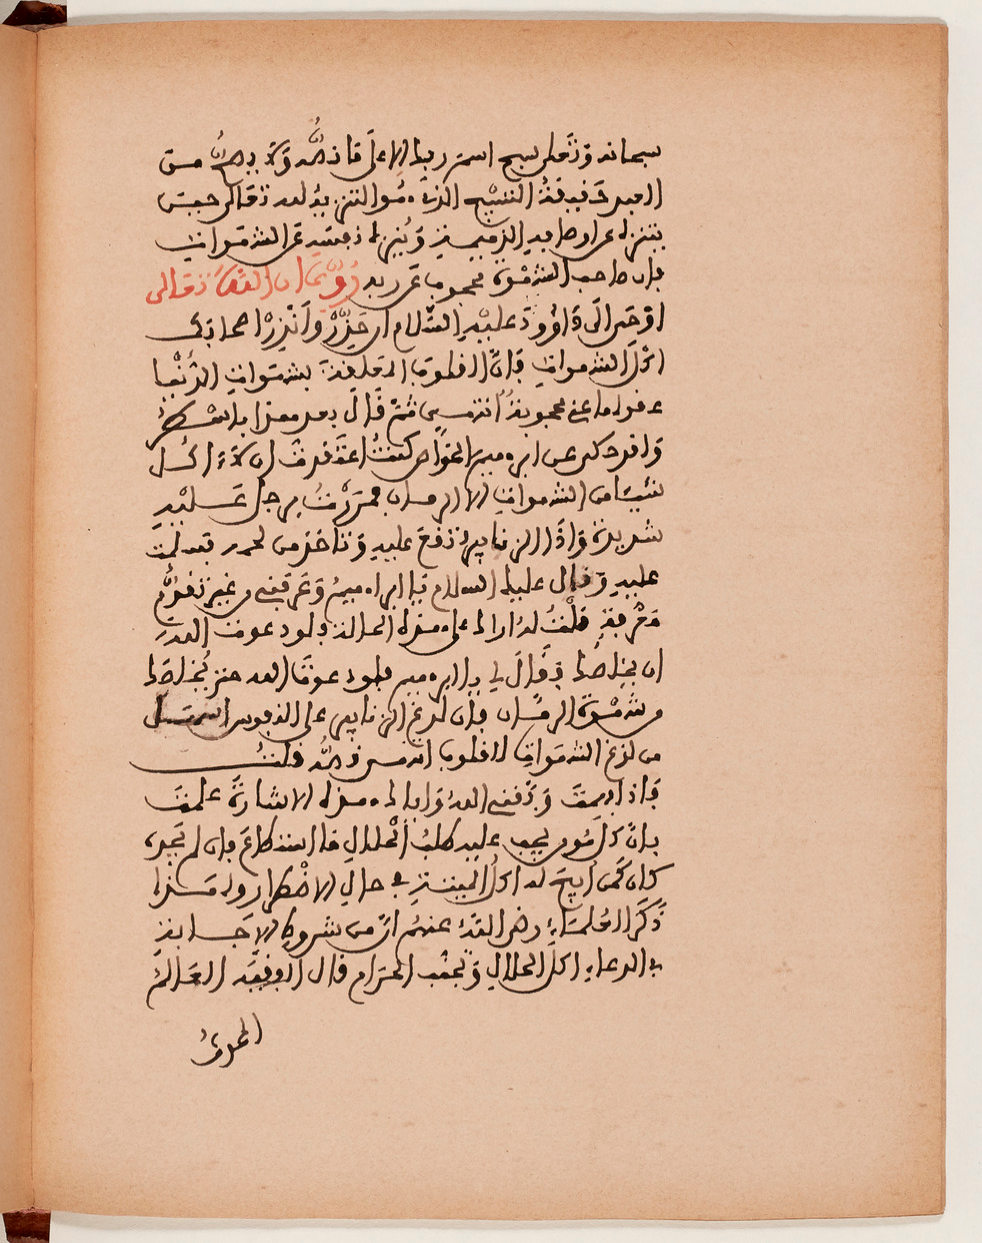 سبحانه وتعلى سبح اسم ربك الاعلى فاذ الله ولا يصح من
العبد حقيقة التسبيح الذي هو التنزيه لله تعالى حتى
يتنزه عن اوصافه الذميمة وينزه نفسه عن الشهوات
فان صاحب الشهوة محجوب عن ربه روي ان الله تعالى
اوحى الى داوود عليه السلام ان حذر وانذر اصحابك
اكل الشهوات فان القلوب المعلقة بشهوات الدنيا
عقولها عني محجوبة انتهى ثم قال بعد هذا باسطر
وقد حكي عن ابرهيم الخواص كنت اعتقدت ان لا ءاكل
شيئا من الشهوات الا الرمان فمررت برجل عليه
شديدة واذا الزنابير تقع عليه وتاخذ من لحمه فسلمت
عليه وقال عليك السلام يا ابراهيم وعرفني من غير تقدم
معرفة فقلت له ارا لك مع الله حالة فلو دعوت الله
ان يخلصك فقال لي يا ابرهيم فلو دعوت الله حتى يخلصك
من شهوة الرمان فان لدغ الزنابير على النفوس اسهل
من لدغ الشهوات للقلوب انتهى قلت
فاذا فهمت وفقني الله واياك هذه الاشارة علمت
بان كل مومن يجب عليه طلب الحلال ما استطاع فان لم يجده
كان كمن ابيح له اكل الميتة في حال الاضطرار ولهذا
ذكر العلماء رضي الله عنهم ان من شروط الاجابة
في الدعاء اكل الحلال وتجنب الحرام قال الفقيه العالم